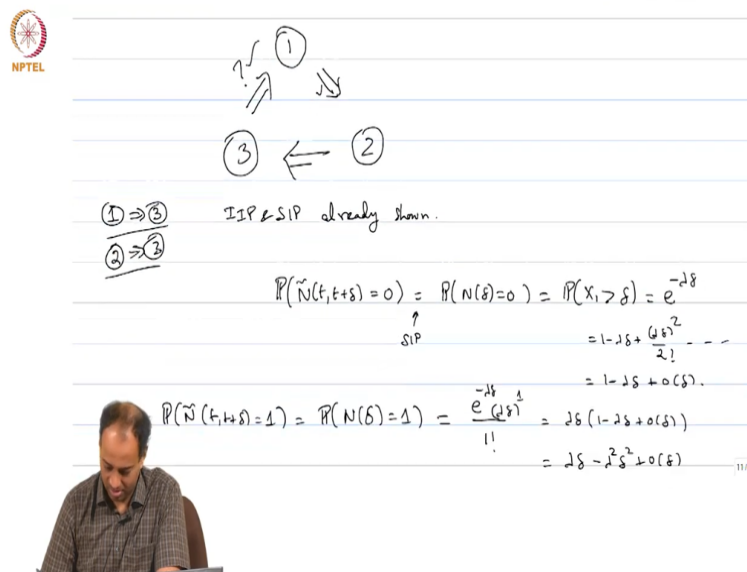 NPTEL
①
? √
③ ⇐ ②
① ⇒ ③ IIP & SIP already shown.
② ⇒ ③
ℙ(Ñ(t,t+δ)=0) = ℙ(N(δ)=0) = ℙ(X₁>δ) = e^{-λδ}
↑
SIP
= 1-λδ+ (λδ)²/2! - - - -
= 1-λδ+o(δ).
ℙ(Ñ(t,t+δ)=1) = ℙ(N(δ)=1) = e^{-λδ}(λδ)^1/1! = λδ(1-λδ+o(δ))
= λδ-λ²δ²+o(δ)